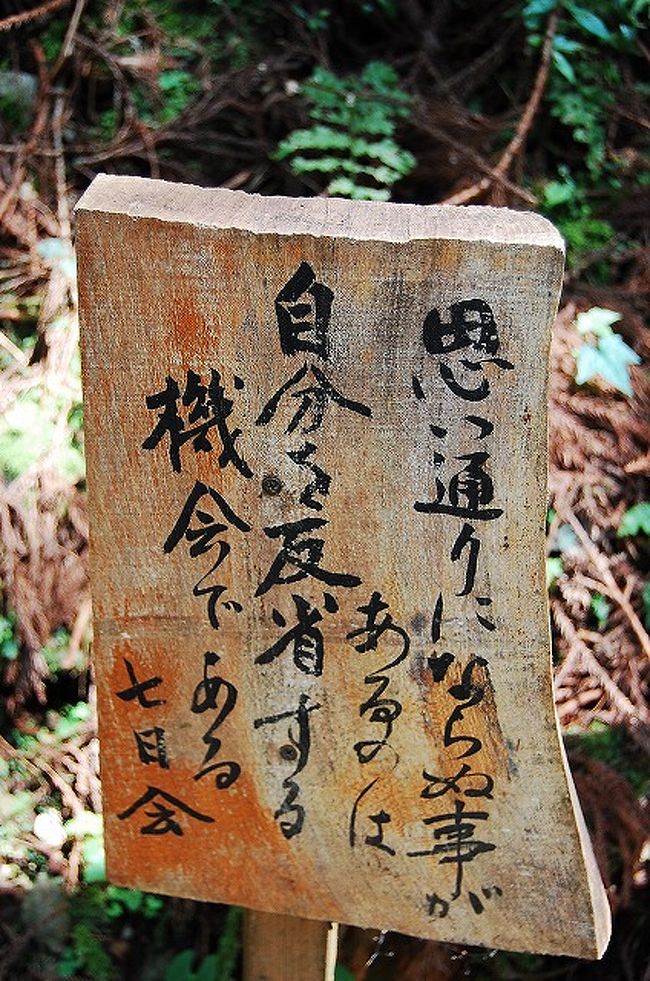 思い通りにならぬ事が
あるのは
自分を反省する
機会である
七日会